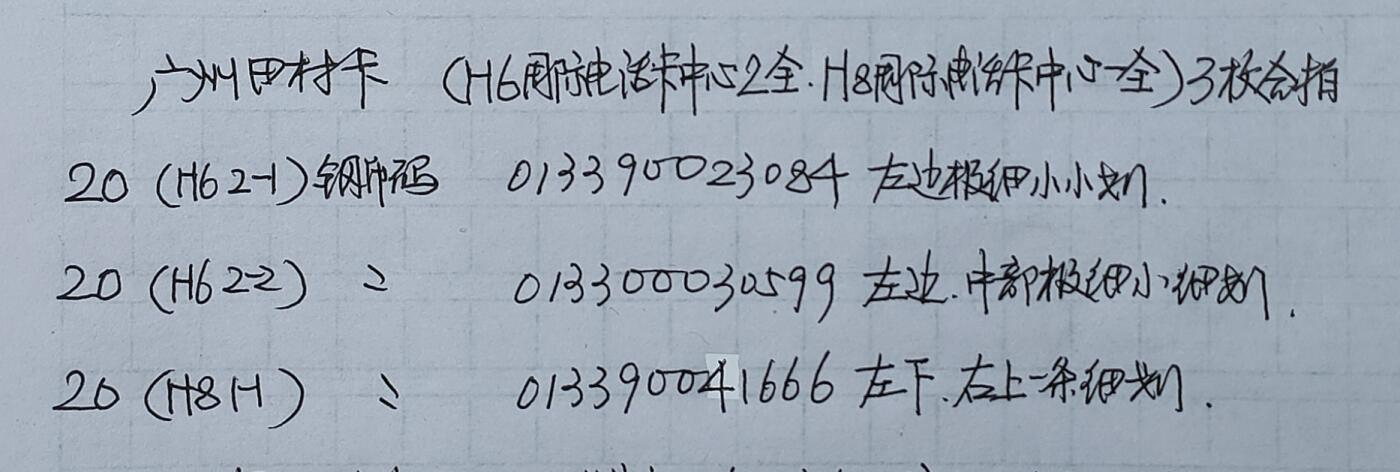 广州田村卡 (H6国际电话卡中心2全.H8国际电话卡中心一全)3枚合拍
20 (H6 2-1) 钢印码 013390023084 左边极细小小划.
20 (H6 2-2) 〃 013300030599 左边.中部极细小细划.
20 (H8 1-1) 〃 013390041666 左下.右上一条细划.